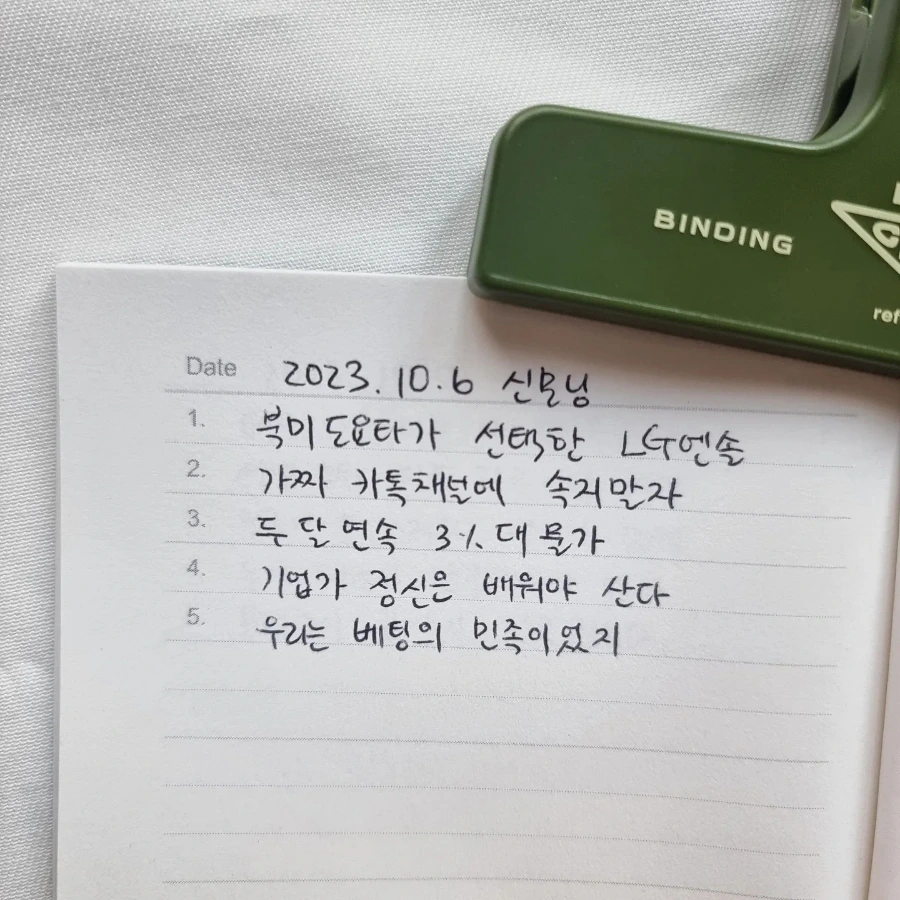 BINDING
ref
Date 2023.10.6 신문닝
1. 북미 도요타가 선택한 LG엔솔
2. 가짜 카톡채널에 속지말자
3. 두 달 연속 3% 대 물가
4. 기업가 정신은 배워야 산다
5. 우리는 베팅의 민족이었지